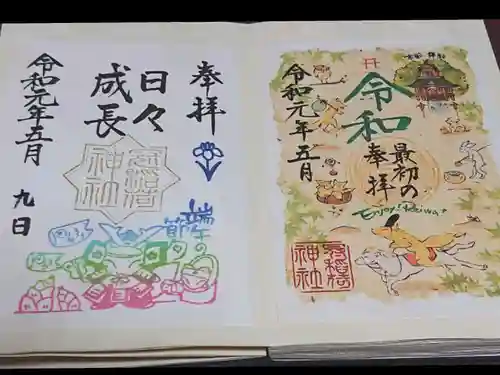 奉拝
日々
成長
令和元年五月
九日
端午
節
神社
令和
最初の
奉拝
令和元年五月
Enjoy! Reiwa!
神社